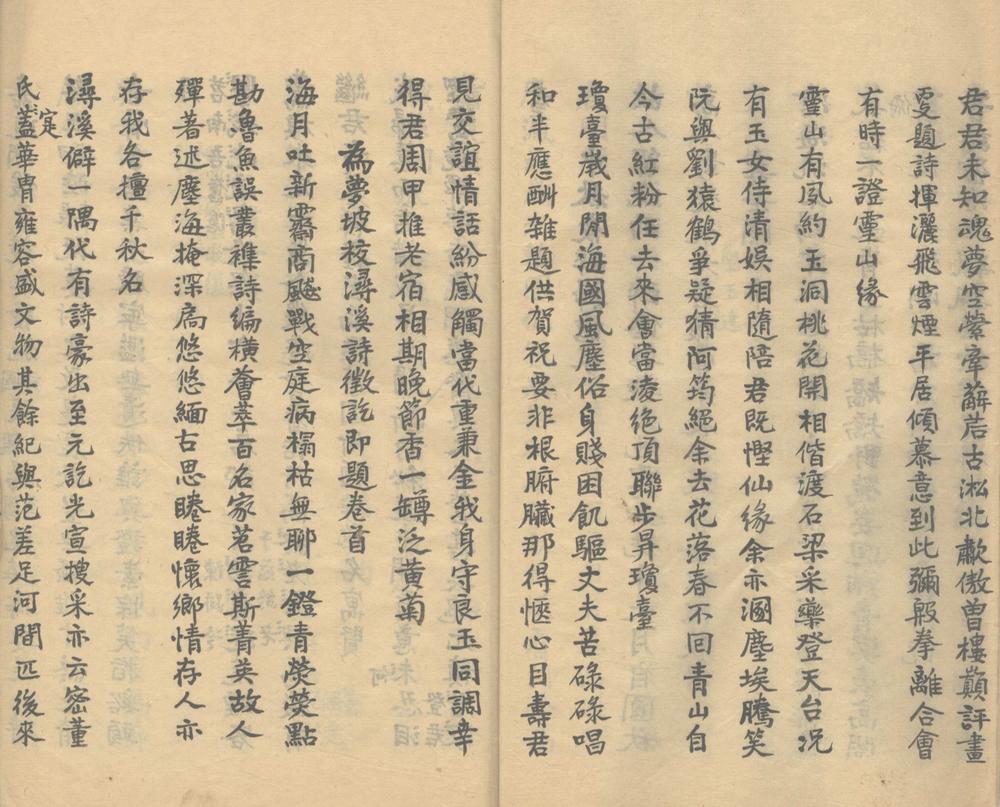 君君未知魂夢空縈牽薜荔古淞北歗傲曾樓顛評畫
更題詩揮灑飛雲煙平居傾慕意到此彌般拳離合會
有時一證靈山緣
靈山有夙約玉洞桃花開相偕渡石梁采藥登天台况
有玉女侍清娛相隨陪君既慳仙緣余亦溷塵埃騰笑
阮與劉猿鶴爭疑猜阿筠絕余去花落春不回青山自
今古紅粉任去來會當淩絕頂聯步昇瓊臺
瓊臺歲月閒海國風塵俗身賤困飢驅丈夫苦碌碌唱
和半應酬雜題供賀祝要非根腑臟那得愜心目壽君
見交誼情話紛感觸當代重兼金我身守良玉同調幸
得君周甲推老宿相期晚節香一罇泛黃菊
為夢坡校潯溪詩徵訖即題卷首
海月吐新霽商飈戰空庭病榻枯無聊一鐙青熒熒點
勘魯魚誤叢襍詩編橫薈萃百名家苕霅斯菁英故人
殫著述塵海掩深扃悠悠緬古思睠睠懷鄉情存人亦
存我各擅千秋名
潯溪僻一隅代有詩豪出至元訖光宣搜采亦云密董
氏蓋定華胄雍容盛文物其餘紀與范差足河間匹後來